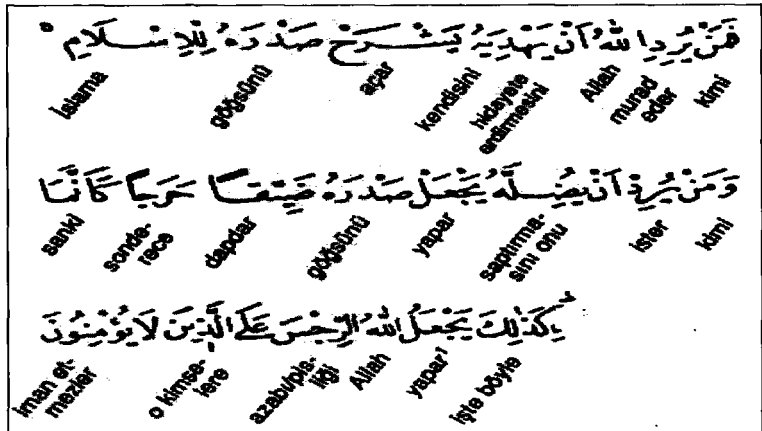 فَمَنْ يُرِدِ اللّٰهُ اَنْ يَهْدِيَهُ يَشْرَحْ صَدْرَهُ لِلْاِسْلَامِ
kimi murad eder Allah hidayete erdirmesini kendisini açar göğsünü İslama
وَمَنْ يُرِدْ اَنْ يُضِلَّهُ يَجْعَلْ صَدْرَهُ ضَيِّقًا حَرَجًا كَاَنَّمَا
kimi ister saptırma-sını onu yapar göğsünü dapdar sonde-rece sanki
كَذٰلِكَ يَجْعَلُ اللّٰهُ الرِّجْسَ عَلَى الَّذِينَ لَا يُؤْمِنُونَ
işte böyle yapar Allah azabı/pis-liği o kimse-lere iman et-mezler